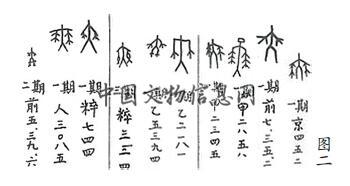 图二
一期 京四五二
一期 前七.三五.二
甲二八五八
二三四五
乙二一八一
期 乙五三九四
期 粹三三四
一期 粹七四四
一期 人三〇八五
二期 前五.三九.六
中国文物信息网